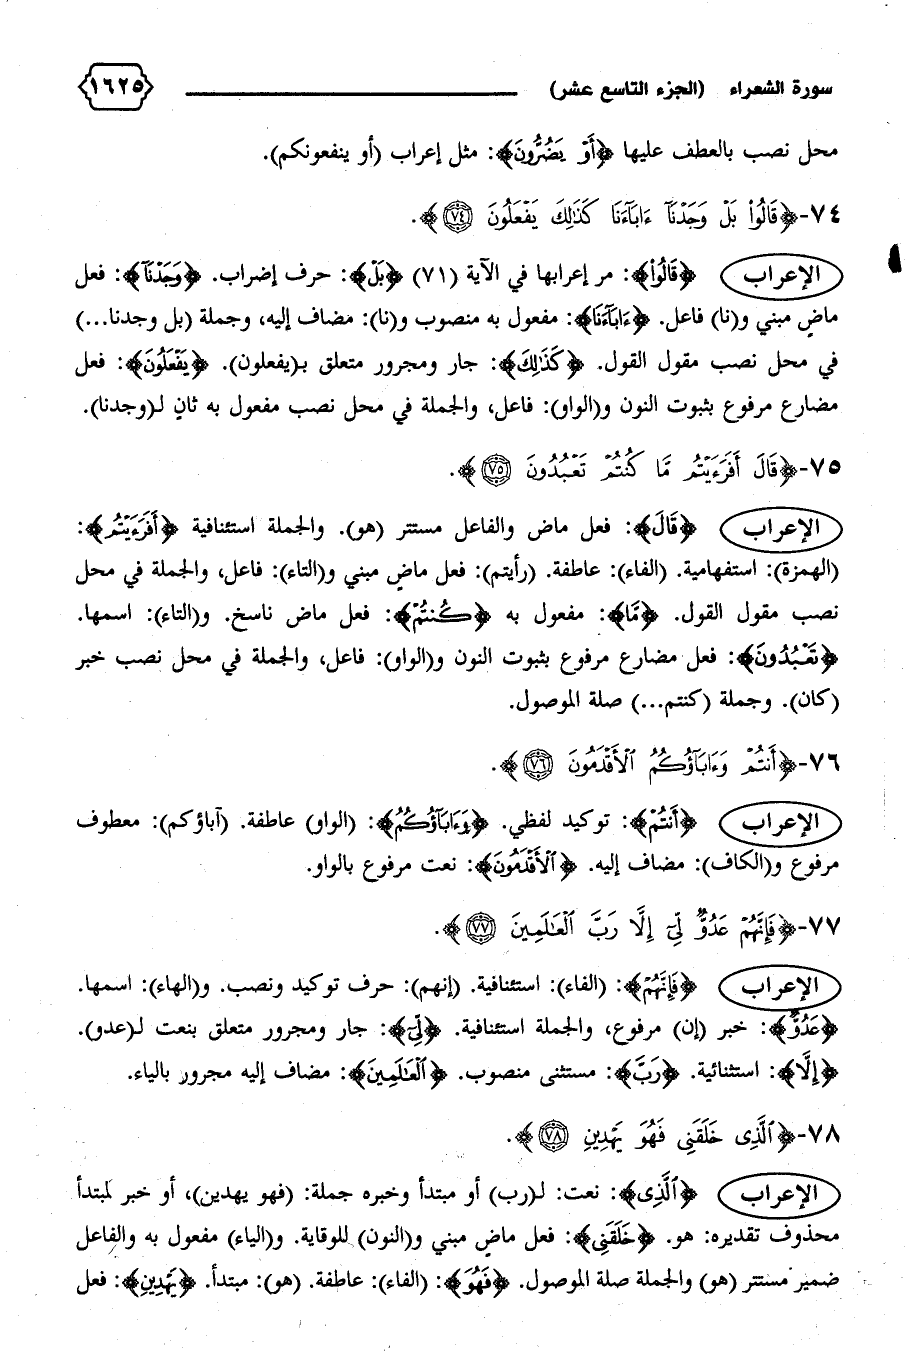 سورة الشعراء (الجزء التاسع عشر) ١٦٢٥
محل نصب بالعطف عليها ﴿أَوْ يَضُرُّونَ﴾: مثل إعراب (أو ينفعونكم).
٧٤-﴿قَالُوا۟ بَلْ وَجَدْنَآ ءَابَآءَنَا كَذَٰلِكَ يَفْعَلُونَ ٧٤﴾.
الإعراب ﴿قَالُوا۟﴾: مر إعرابها في الآية (٧١) ﴿بَلْ﴾: حرف إضراب. ﴿وَجَدْنَآ﴾: فعل
ماضٍ مبني و(نا) فاعل. ﴿ءَابَآءَنَا﴾: مفعول به منصوب و(نا): مضاف إليه، وجملة (بل وجدنا...)
في محل نصب مقول القول. ﴿كَذَٰلِكَ﴾: جار ومجرور متعلق بـ(يفعلون). ﴿يَفْعَلُونَ﴾: فعل
مضارع مرفوع بثبوت النون و(الواو): فاعل، والجملة في محل نصب مفعول به ثانٍ لـ(وجدنا).
٧٥-﴿قَالَ أَفَرَءَيْتُم مَّا كُنتُمْ تَعْبُدُونَ ٧٥﴾.
الإعراب ﴿قَالَ﴾: فعل ماض والفاعل مستتر (هو). والجملة استئنافية ﴿أَفَرَءَيْتُم﴾:
(الهمزة): استفهامية. (الفاء): عاطفة. (رأيتم): فعل ماضٍ مبني و(التاء): فاعل، والجملة في محل
نصب مقول القول. ﴿مَّا﴾: مفعول به ﴿كُنتُمْ﴾: فعل ماض ناسخ. و(التاء): اسمها.
﴿تَعْبُدُونَ﴾: فعل مضارع مرفوع بثبوت النون و(الواو): فاعل، والجملة في محل نصب خبر
(كان). وجملة (كنتم...) صلة الموصول.
٧٦-﴿أَنتُمْ وَءَابَآؤُكُمُ ٱلْأَقْدَمُونَ ٧٦﴾.
الإعراب ﴿أَنتُمْ﴾: توكيد لفظي. ﴿وَءَابَآؤُكُمُ﴾: (الواو) عاطفة. (آباؤكم): معطوف
مرفوع و(الكاف): مضاف إليه. ﴿ٱلْأَقْدَمُونَ﴾: نعت مرفوع بالواو.
٧٧-﴿فَإِنَّهُمْ عَدُوٌّ لِّىٓ إِلَّا رَبَّ ٱلْعَـٰلَمِينَ ٧٧﴾.
الإعراب ﴿فَإِنَّهُمْ﴾: (الفاء): استئنافية. (إنهم): حرف توكيد ونصب. و(الهاء): اسمها.
﴿عَدُوٌّ﴾: خبر (إن) مرفوع، والجملة استئنافية. ﴿لِّىٓ﴾: جار ومجرور متعلق بنعت لـ(عدو).
﴿إِلَّا﴾: استثنائية. ﴿رَبَّ﴾: مستثنى منصوب. ﴿ٱلْعَـٰلَمِينَ﴾: مضاف إليه مجرور بالياء.
٧٨-﴿ٱلَّذِى خَلَقَنِى فَهُوَ يَهْدِينِ ٧٨﴾.
الإعراب ﴿ٱلَّذِى﴾: نعت: لـ(رب) أو مبتدأ وخبره جملة: (فهو يهدين)، أو خبر لمبتدأ
محذوف تقديره: هو. ﴿خَلَقَنِى﴾: فعل ماضٍ مبني و(النون) للوقاية. و(الياء) مفعول به والفاعل
ضمير مستتر (هو) والجملة صلة الموصول. ﴿فَهُوَ﴾: (الفاء): عاطفة. (هو): مبتدأ. ﴿يَهْدِينِ﴾: فعل